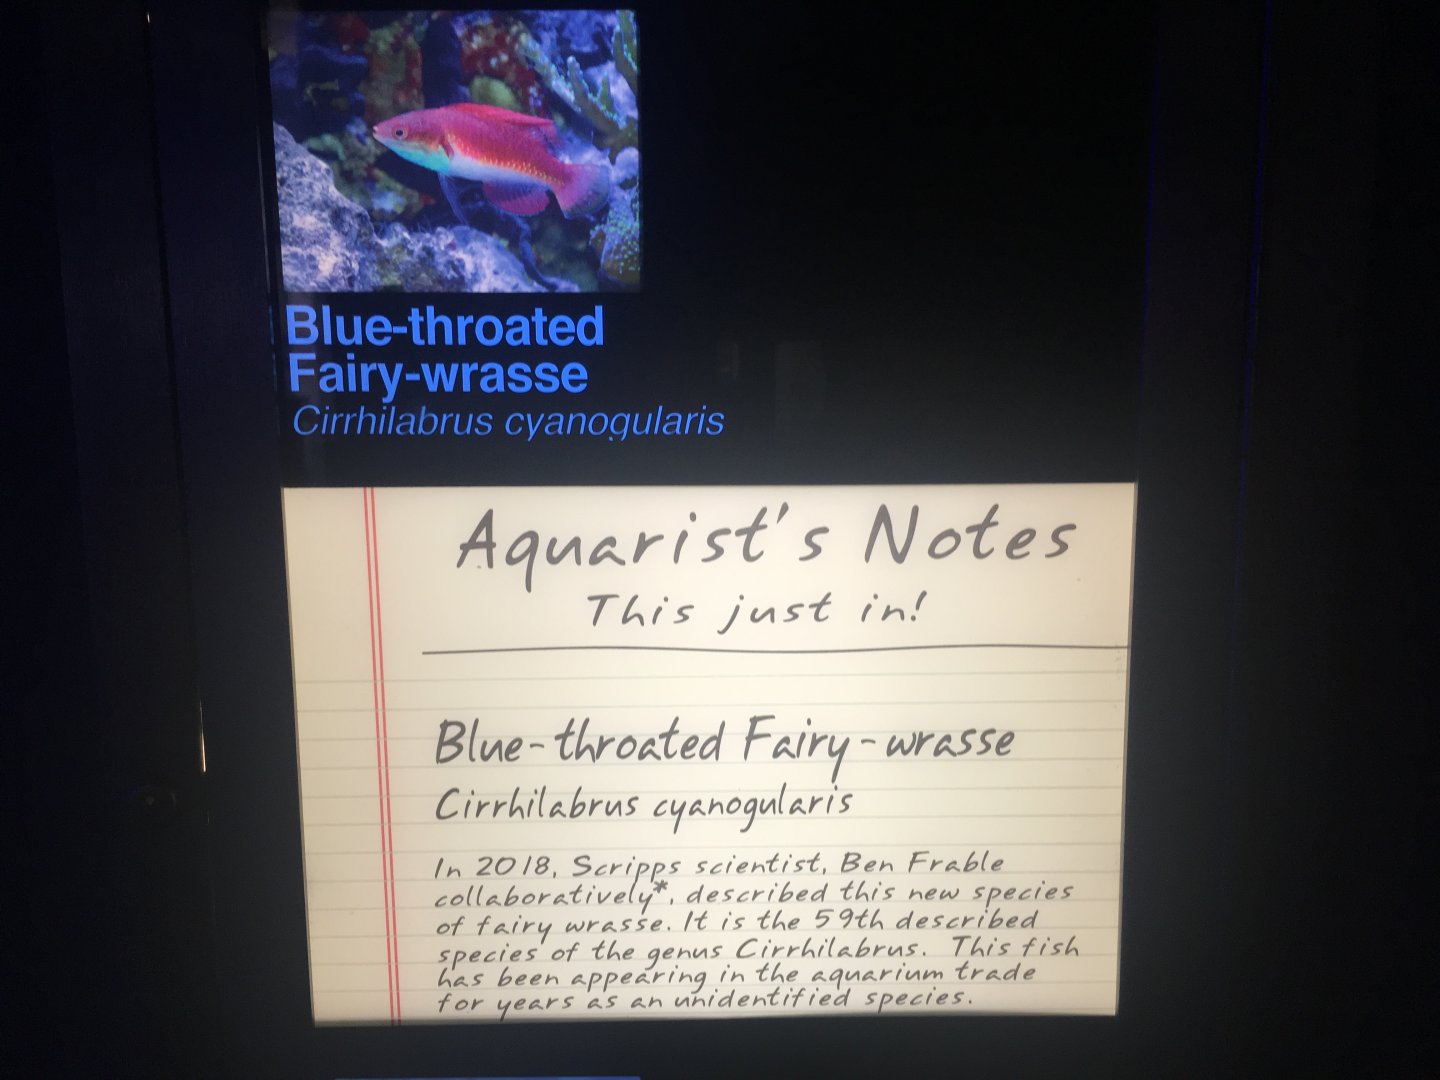 Blue-throated
Fairy-wrasse
Cirrhilabrus cyanogularis
Aquarist's Notes
This just in!
Blue-throated Fairy-wrasse
Cirrhilabrus cyanogularis
In 2018, Scripps scientist, Ben Frable
collaboratively*, described this new species
of fairy wrasse. It is the 59th described
species of the genus Cirrhilabrus. This fish
has been appearing in the aquarium trade
for years as an unidentified species.